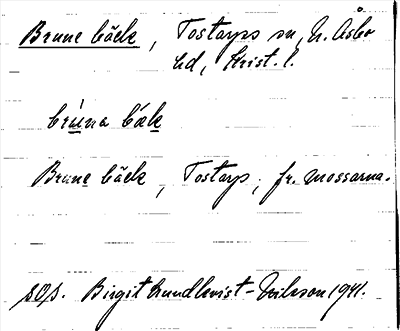 Brune bäck, Tostarps sn, N. Åsbo
hd, Krist. l.
brúna bäk
Brune bäck, Tostarp, fr. mossarna.
SOA. Birgit Lundkvist-Nilsson 1941.